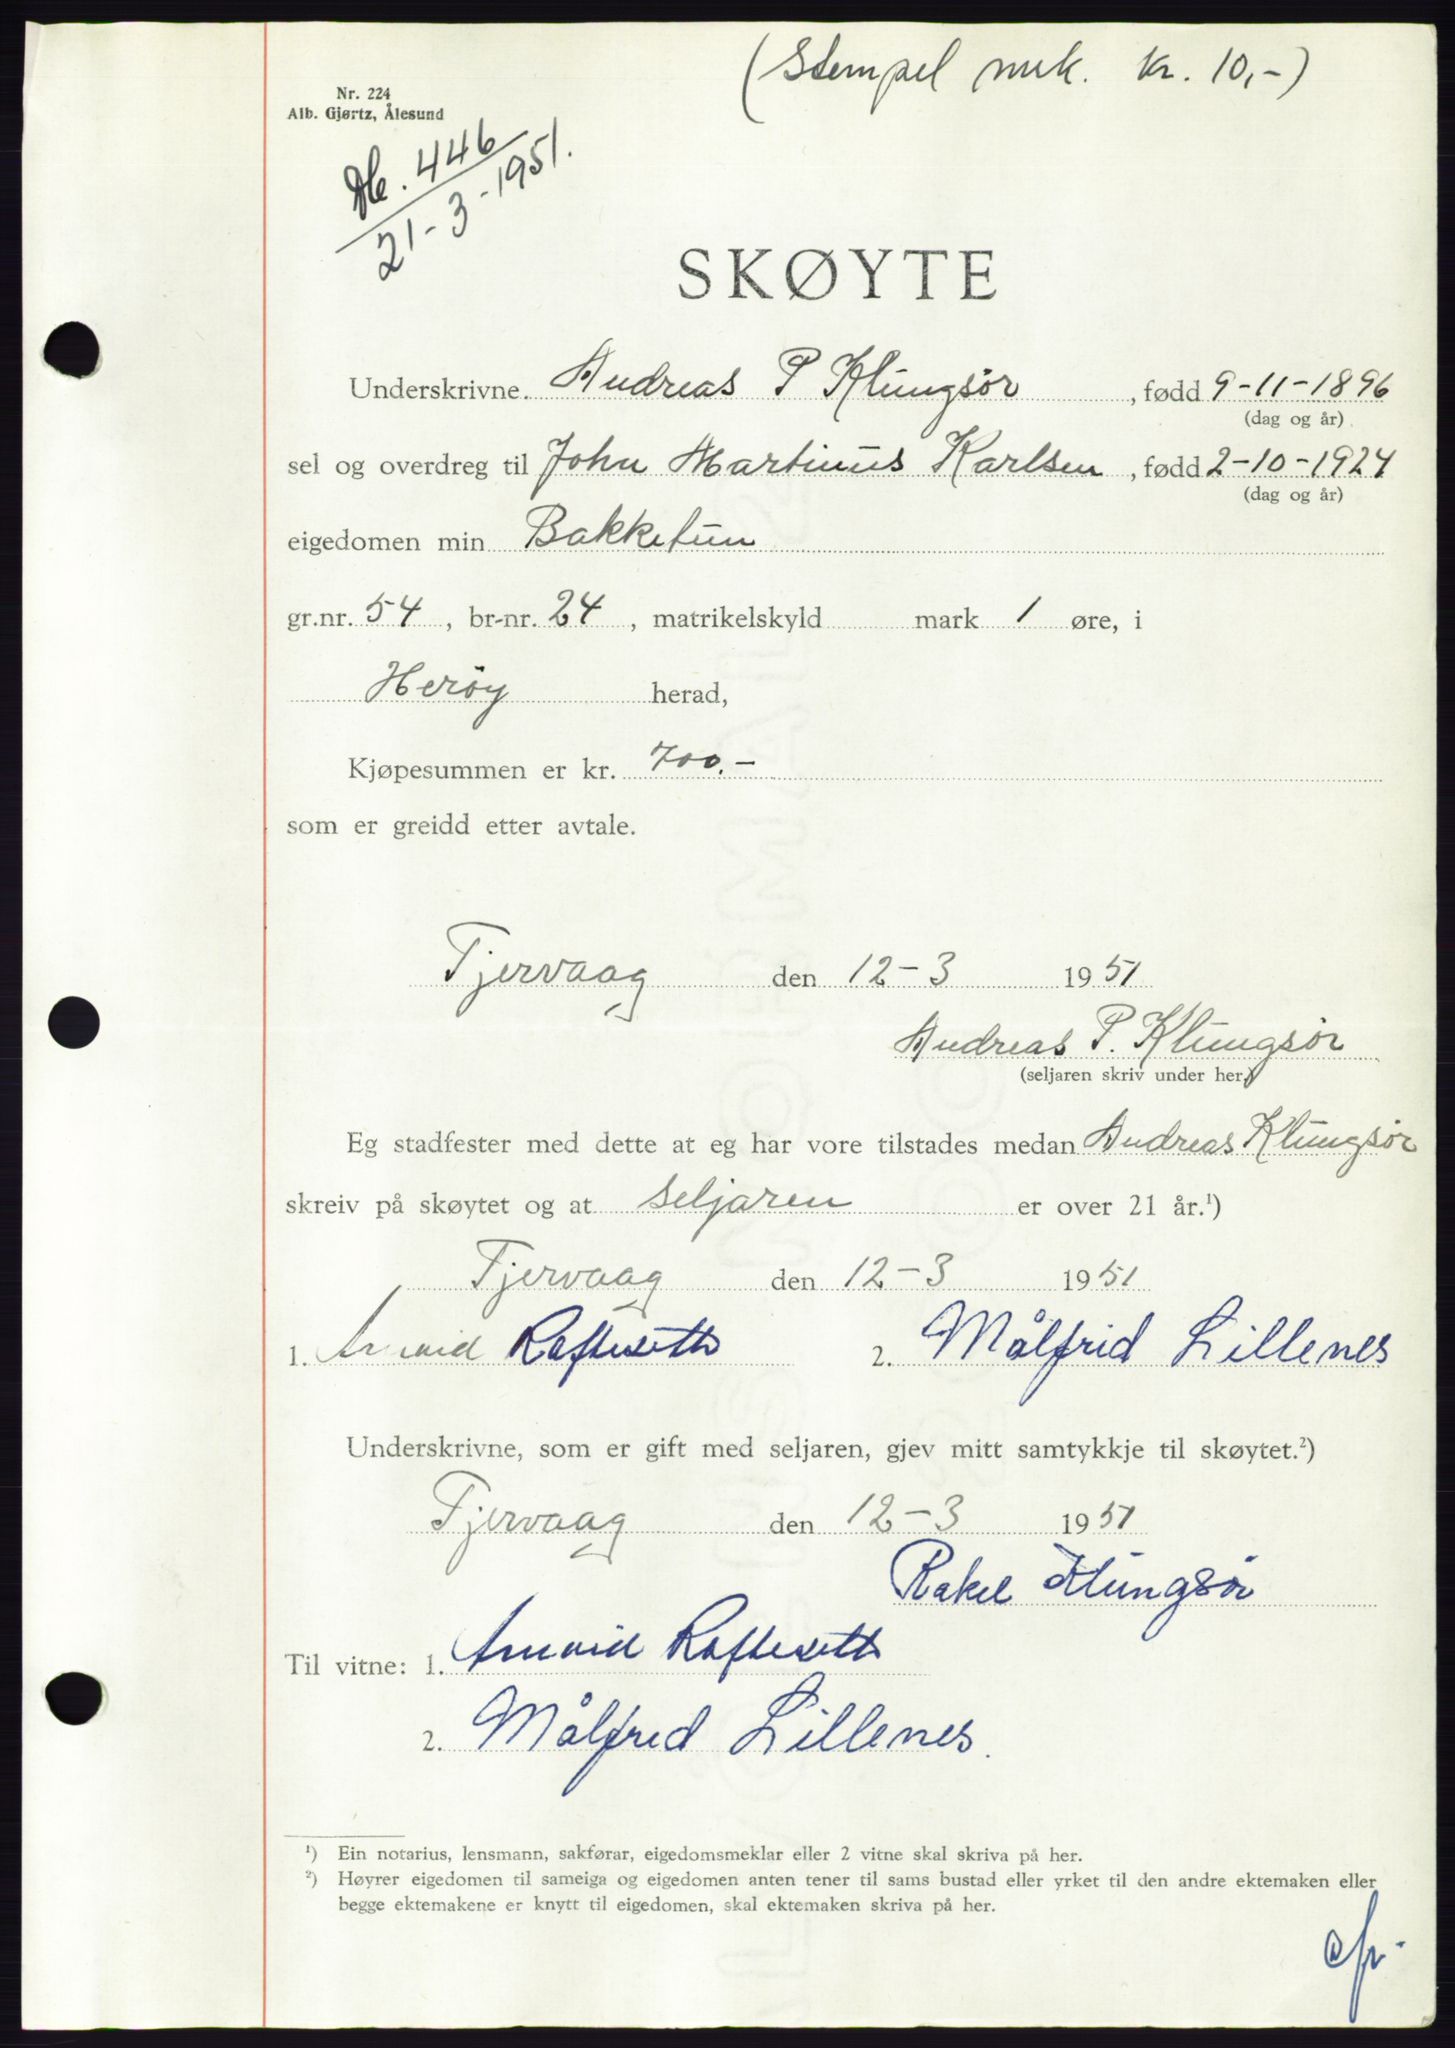 (Stempel merk. kr. 10,-)
Nr. 224
Alb. Gjørtz, Ålesund
Db. 446
21-3-1951.
SKØYTE
Underskrivne Andreas P Klungsör, fødd 9-11-1896
(dag og år)
sel og overdreg til John Martinus Karlsen, fødd 2-10-1924
(dag og år)
eigedomen min Bakketun
gr.nr. 54, br-nr. 24, matrikelskyld mark 1 øre, i
Heröy herad,
Kjøpesummen er kr. 700.-
som er greidd etter avtale.
Tjervaag den 12-3 1951
Andreas P. Klungsör
(seljaren skriv under her.)
Eg stadfester med dette at eg har vore tilstades medan Andreas Klungsör
skreiv på skøytet og at seljaren er over 21 år.¹)
Tjervaag den 12-3 1951
1. Arnvid Raftesett 2. Målfrid Lillenes
Underskrivne, som er gift med seljaren, gjev mitt samtykkje til skøytet.²)
Tjervaag den 12-3 1951
Rakel Klungsör
Til vitne: 1. Arnvid Raftesett
2. Målfrid Lillenes.
¹) Ein notarius, lensmann, sakførar, eigedomsmeklar eller 2 vitne skal skriva på her.
²) Høyrer eigedomen til sameiga og eigedomen anten tener til sams bustad eller yrket til den andre ektemaken eller
begge ektemakene er knytt til eigedomen, skal ektemaken skriva på her.